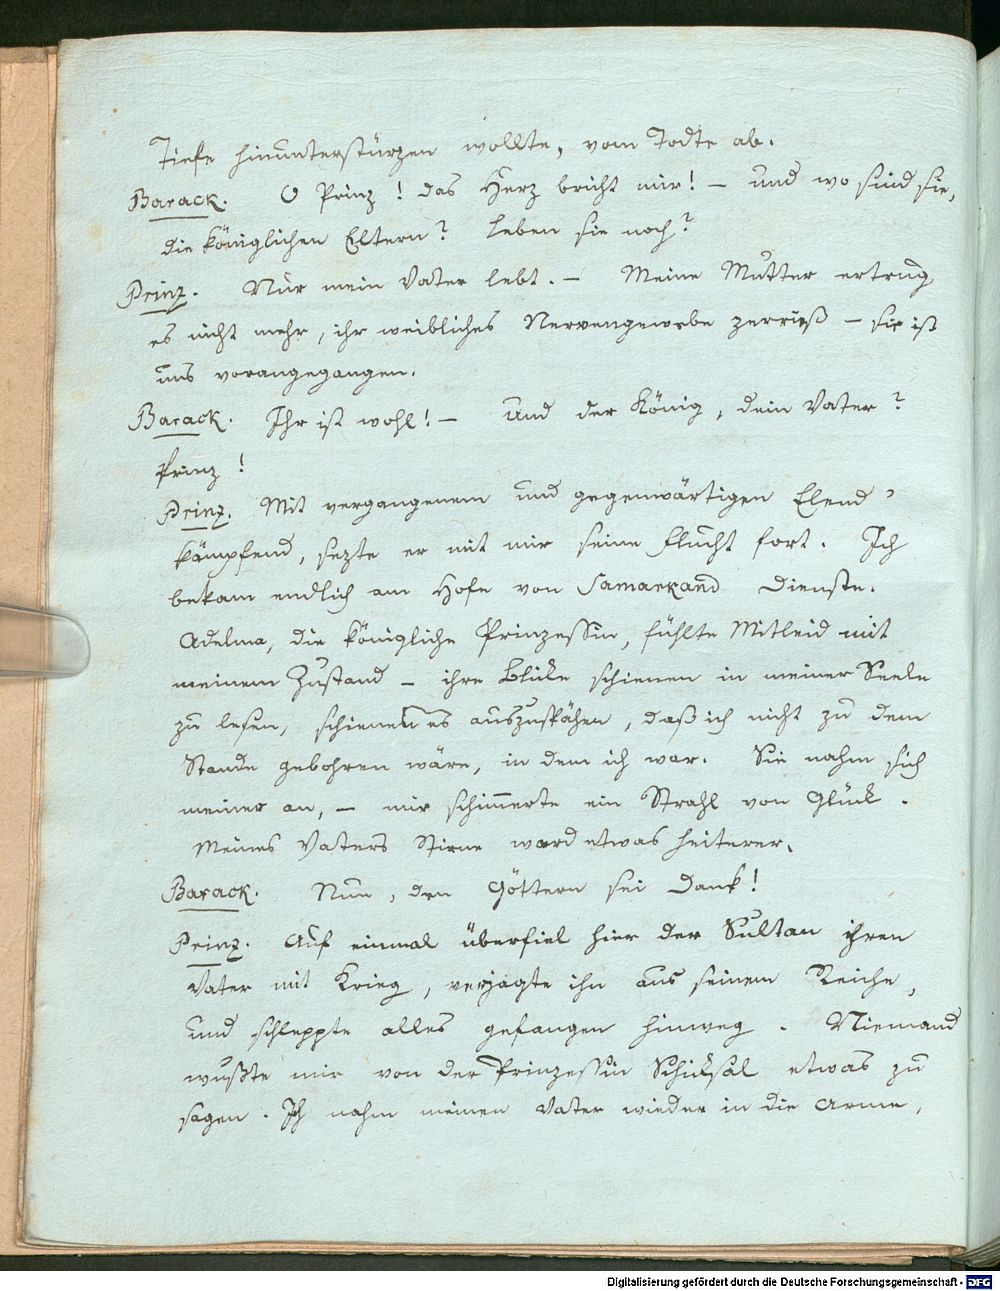 Tiefe hinunterstürzen wollte, vom Todte ab.
Barack. O Prinz! das Herz bricht mir! – und wo sind sie,
die königlichen Eltern? Leben sie noch?
Prinz. Nur mein Vater lebt. – Meine Mutter ertrug
es nicht mehr, ihr weibliches Nervengewebe zerriß – sie ist
uns vorangegangen.
Barack. Ihr ist wohl! – Und der König, dein Vater?
Prinz!
Prinz. Mit vergangenem und gegenwärtigen Elend
kämpfend, sezte er mit mir seine Flucht fort. Ich
bekam endlich am Hofe von Samarkand Dienste.
Adelma, die königliche Prinzessin, fühlte Mitleid mit
meinem Zustand – ihre Blicke schienen in meiner Seele
zu lesen, schienen es auszuspähen, daß ich nicht zu dem
Stande gebohren wäre, in dem ich war. Sie nahm sich
meiner an, – mir schimmerte ein Strahl von Glück.
Meines Vaters Stirne ward etwas heiterer.
Barack. Nun, den Göttern sei Dank!
Prinz. Auf einmal überfiel hier der Sultan ihren
Vater mit Krieg, verjagte ihn aus seinem Reiche,
und schleppte alles gefangen hinweg. Niemand
wußte mir von der Prinzessin Schicksal etwas zu
sagen. Ich nahm meinen Vater wieder in die Arme,
Digitalisierung gefördert durch die Deutsche Forschungsgemeinschaft - DFG